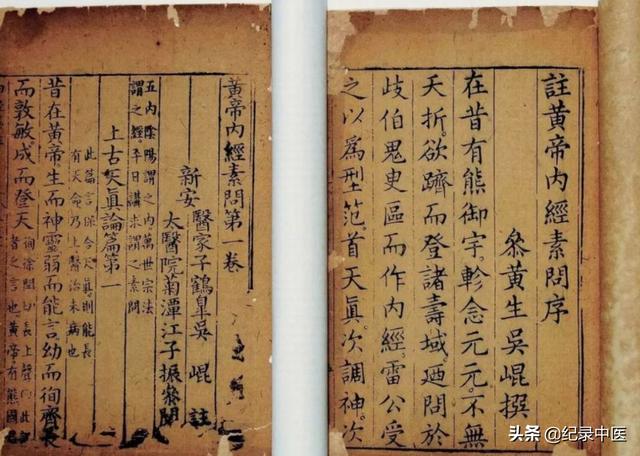 註黃帝內經素問序
叅黃生吳崐撰
在昔有熊御宇。軫念元元。不無
夭折。欲躋而登諸壽域。廼問於
歧伯鬼臾區而作內經。雷公受
之以爲型范。首天真。次調神。次
黃帝內經素問第一卷
新安
醫家子鶴皐吳 崐 註
太醫院菊潭江子振叅閱
五內陰陽謂之內。萬世宗法
謂之經。平日講求謂之素問
上古天真論篇第一
此篇言保合天真則能長
有天命。乃上醫治未病也
昔在黃帝。生而神靈。弱而能言。幼而徇齊。長
而敦敏。成而登天
者之言也。黃帝。有熊國
頭条 @纪录中医